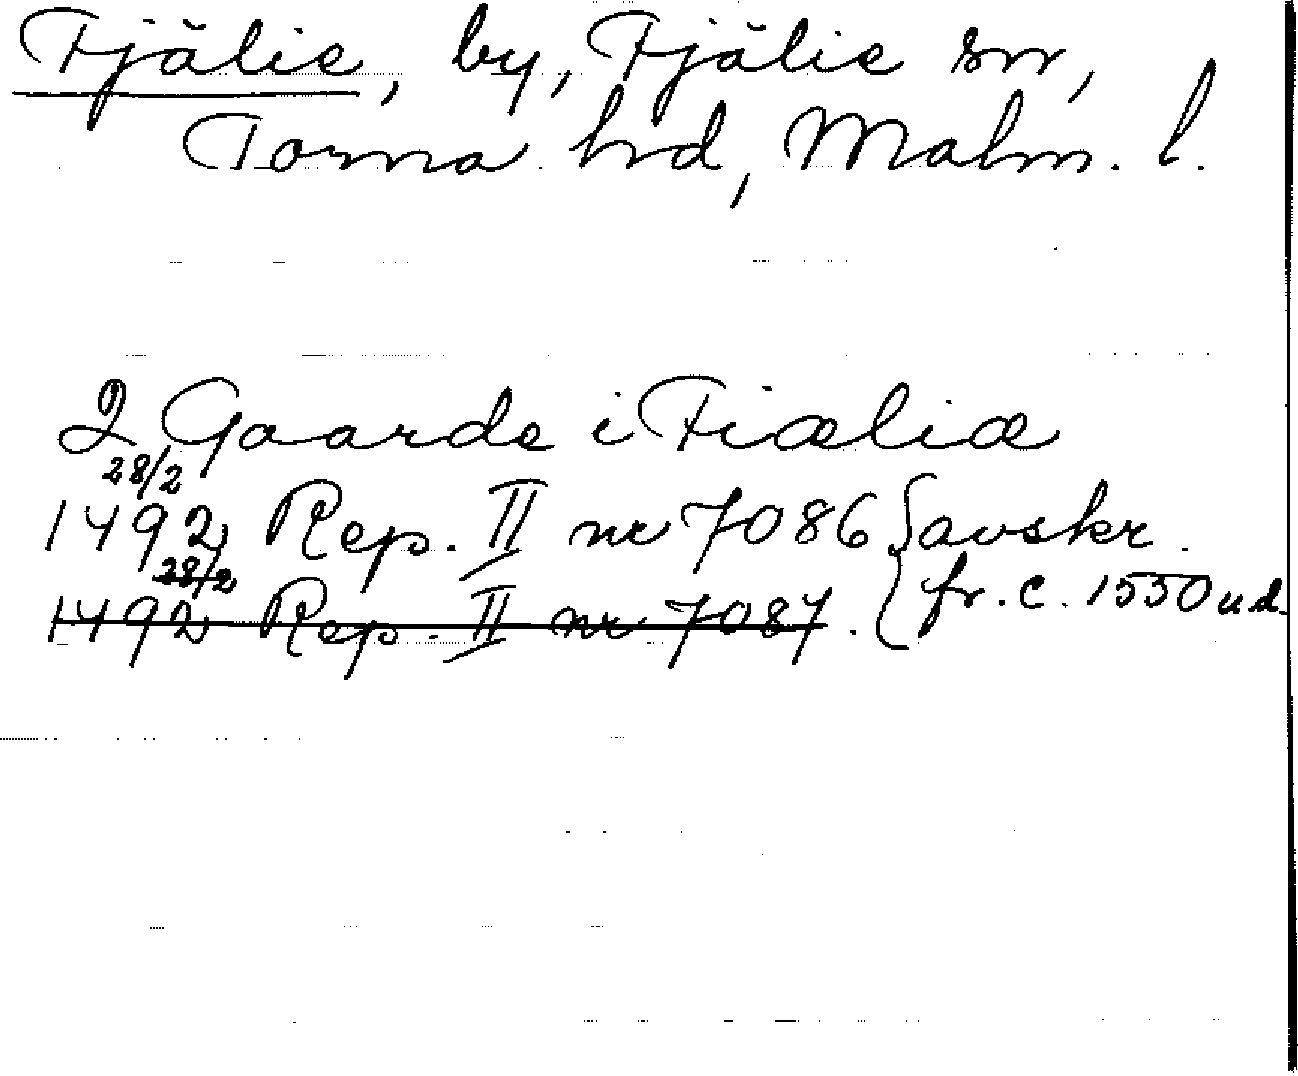 Fjälie, by, Fjälie sn,
Torna hrd, Malm. l.
2 Gaarde i Fiæliæ
28/2
1492 Rep. II nr 7086 { avskr.
28/2
1492 Rep. II nr 7087. { fr. c. 1550 u.d.